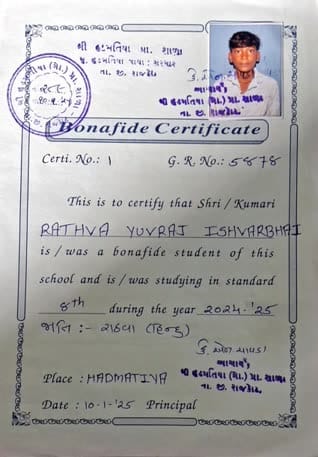 શ્રી હડમતિયા પ્રા. શાળા
તા. જી. રાજકોટ
આચાર્ય,
પ્રા. શાળા
તા. જી. રાજકોટ.
Bonafide Certificate
Certi. No.: 1 G. R. No.: 5878
This is to certify that Shri / Kumari
RATHVA YUVRAJ ISHVARBHAI
is / was a bonafide student of this
school and is / was studying in standard
8th during the year 2024-'25
જાતિ :- રાઠવા (હિન્દુ)
આચાર્ય,
શ્રી હડમતિયા (ગો.) પ્રા. શાળા
તા. જી. રાજકોટ.
Place : HADMATIYA
Date : 10-1-'25 Principal